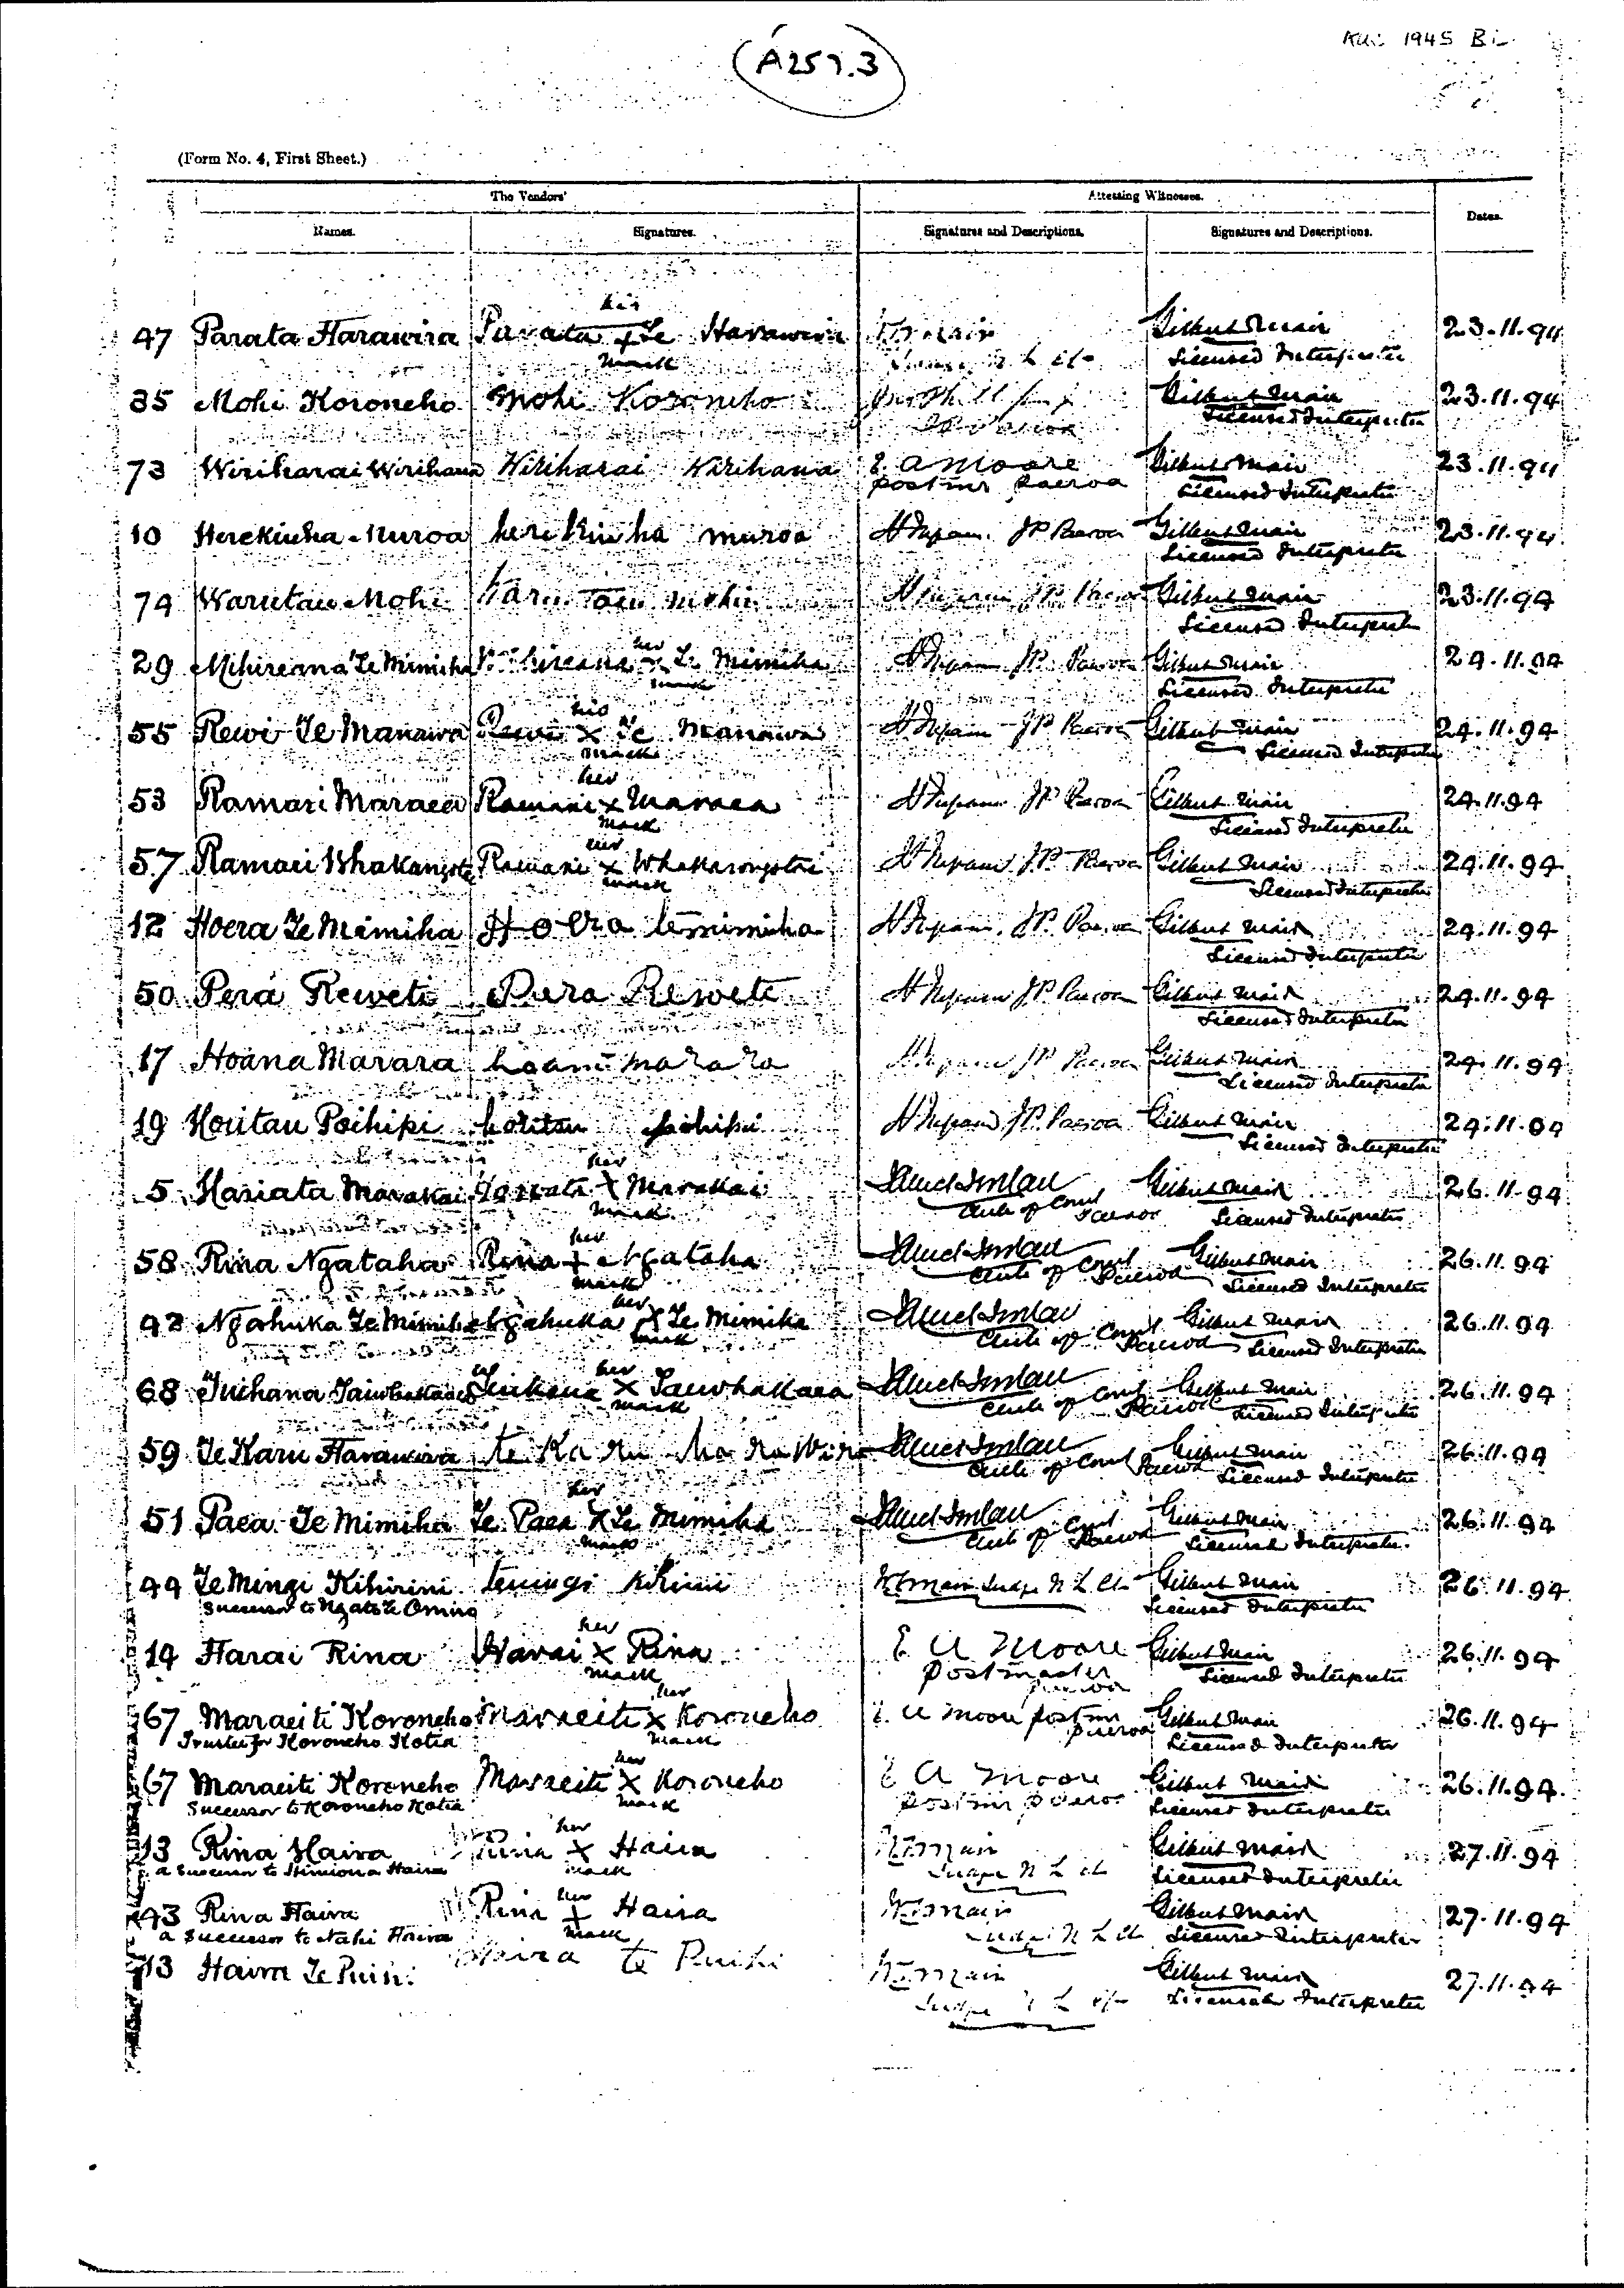 A257.3
1945 BL
(Form No. 4, First Sheet.)
The Vendors' Attesting Witnesses.
Names. Signatures. Signatures and Descriptions. Signatures and Descriptions. Dates.
his
47 Parata Harawira Parata x Te Harawira Gilbert Mair 23.11.94
mark Licensed Interpreter
35 Mohi Koroneho Mohi Koroneho Gilbert Mair 23.11.94
Licensed Interpreter
73 Wiriharai Wirihana Wiriharai Wirihana E. A Moore Gilbert Mair 23.11.94
postmr Paeroa Licensed Interpreter
10 Herekiuha Muroa herekiuha muroa JP Paeroa Gilbert Mair 23.11.94
Licensed Interpreter
74 Warutau Mohi Warutau mohi JP Gilbert Mair 23.11.94
Licensed Interpreter
her
29 Mihireana Te Mimiha Mihireana x Te Mimiha JP Paeroa Gilbert Mair 24.11.94
mark Licensed Interpreter
his
55 Rewi Te Manawa Rewi x Te Manawa JP Paeroa Gilbert Mair 24.11.94
mark Licensed Interpreter
her
53 Ramari Maraea Ramari x Maraea JP Paeroa Gilbert Mair 24.11.94
mark Licensed Interpreter
her
57 Ramari Ramari x JP Paeroa Gilbert Mair 24.11.94
mark Licensed Interpreter
12 Hoera Te Mimiha Hoera te mimiha JP Paeroa Gilbert Mair 24.11.94
Licensed Interpreter
50 Pera Reweti Pera Reweti JP Paeroa Gilbert Mair 24.11.94
Licensed Interpreter
17 Hoana Marara hoana marara JP Paeroa Gilbert Mair 24.11.94
Licensed Interpreter
19 Houtau Poihipi JP Paeroa Gilbert Mair 24.11.94
Licensed Interpreter
her
5 Hariata Marakai Hariata x Marakai Gilbert Mair 26.11.94
mark Clerk of Court Paeroa Licensed Interpreter
her
58 Rina Ngataha Rina x Ngataha Gilbert Mair 26.11.94
mark Clerk of Court Paeroa Licensed Interpreter
her
42 Ngahuka Te Mimiha Ngahuka x Te Mimiha Gilbert Mair 26.11.94
mark Clerk of Court Paeroa Licensed Interpreter
her
68 x Gilbert Mair 26.11.94
mark Clerk of Court Paeroa Licensed Interpreter
59 Te Karu Harawira te Karu harawira Gilbert Mair 26.11.94
Clerk of Court Paeroa Licensed Interpreter
her
51 Paea Te Mimiha Te Paea x Te Mimiha Gilbert Mair 26.11.94
mark Clerk of Court Paeroa Licensed Interpreter
44 Te Mingi Kihirini temingi kihirini Judge N L Ct Gilbert Mair 26.11.94
Successor to Licensed Interpreter
her
14 Harai Rina Harai x Rina E A Moore Gilbert Mair 26.11.94
mark Postmaster Paeroa Licensed Interpreter
her
67 Maraeiti Koroneho Maraeiti x Koroneho E. A Moore postmr Paeroa Gilbert Mair 26.11.94
Trustee for Koroneho Kotia mark Licensed Interpreter
her
67 Maraeiti Koroneho Maraeiti x Koroneho E A Moore Gilbert Mair 26.11.94
Successor to Koroneho Kotia mark postmr Paeroa Licensed Interpreter
her
13 Rina Haira Rina x Haira Gilbert Mair 27.11.94
a Successor to Himiona Haira mark Judge N L Ct Licensed Interpreter
her
43 Rina Haira Rina x Haira Gilbert Mair 27.11.94
a Successor to Nahi Haira mark Judge N L Ct Licensed Interpreter
13 Haira Te Puihi Haira te Puihi Gilbert Mair 27.11.94
Judge N L Ct Licensed Interpreter